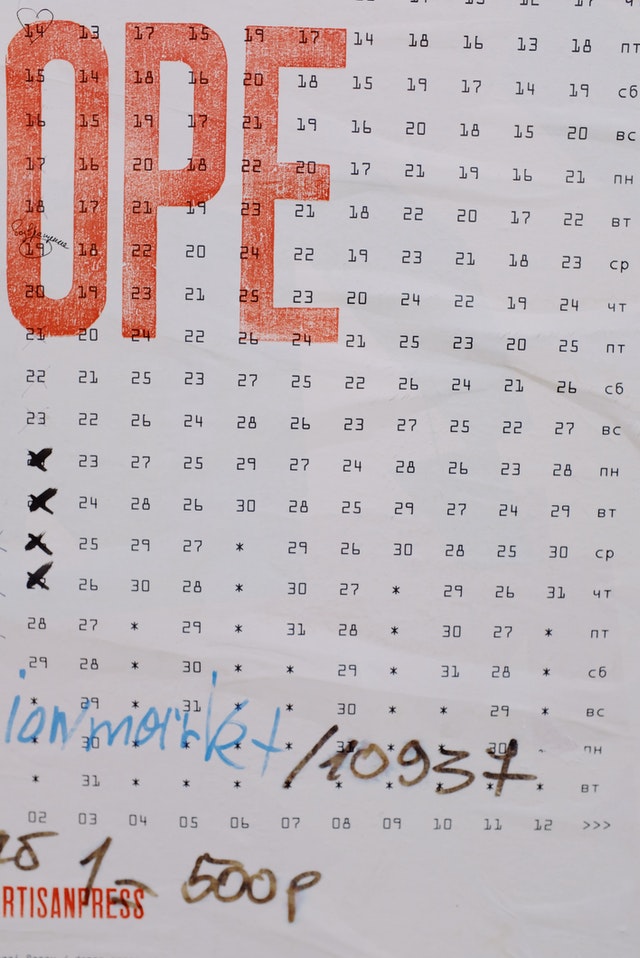 OPE
14 13 17 15 19 17 14 18 16 13 18 пт
15 14 18 16 20 18 15 19 17 14 19 сб
16 15 19 17 21 19 16 20 18 15 20 вс
17 16 20 18 22 20 17 21 19 16 21 пн
18 17 21 19 23 21 18 22 20 17 22 вт
19 18 22 20 24 22 19 23 21 18 23 ср
20 19 23 21 25 23 20 24 22 19 24 чт
21 20 24 22 26 24 21 25 23 20 25 пт
22 21 25 23 27 25 22 26 24 21 26 сб
23 22 26 24 28 26 23 27 25 22 27 вс
23 27 25 29 27 24 28 26 23 28 пн
24 28 26 30 28 25 29 27 24 29 вт
25 29 27 * 29 26 30 28 25 30 ср
26 30 28 * 30 27 * 29 26 31 чт
28 27 * 29 * 31 28 * 30 27 * пт
29 28 * 30 * * 29 * 31 28 * сб
* 29 * 31 * * 30 * * 29 * вс
ionmarkt /10937
* 30 * * * * 31 * * 30 * пн
* 31 * * * * * * * * * вт
02 03 04 05 06 07 08 09 10 11 12 >>>
1 - 500р
RTISANPRESS